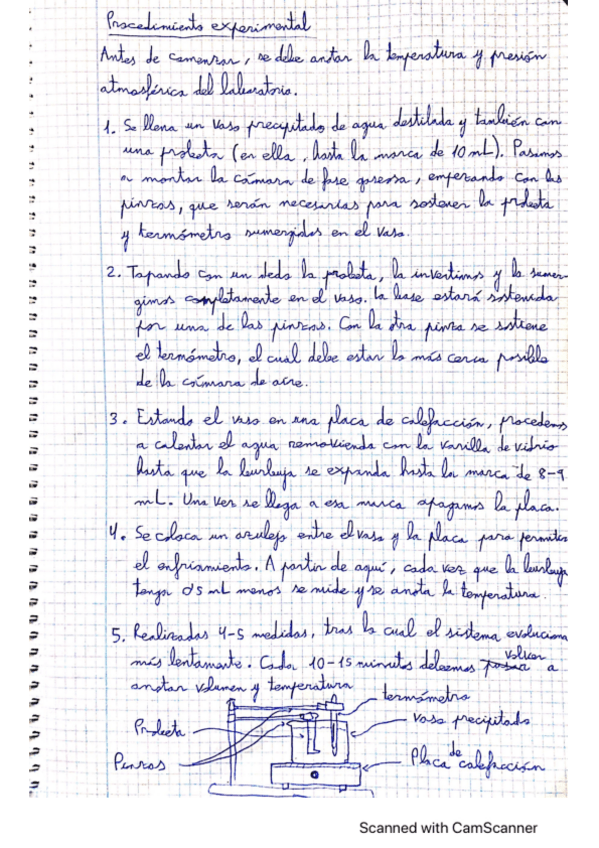 Procedimiento experimental
Antes de comenzar, se debe anotar la temperatura y presión
atmosférica del laboratorio.
1. Se llena un vaso precipitados de agua destilada y también con
una probeta (en ella, hasta la marca de 10 mL). Pasamos
a montar la cámara de fase gaseosa, empezando con las
pinzas, que serán necesarias para sostener la probeta
y termómetro sumergidos en el vaso.
2. Tapando con un dedo la probeta, la invertimos y la sumer-
gimos completamente en el vaso. La base estará sostenida
por una de las pinzas. Con la otra pinza se sostiene
el termómetro, el cual debe estar lo más cerca posible
de la cámara de aire.
3. Estando el vaso en una placa de calefacción, procedemos
a calentar el agua removiendo con la varilla de vidrio
hasta que la burbuja se expanda hasta la marca de 8-9
mL. Una vez se llega a esa marca apagamos la placa.
4. Se coloca un azulejo entre el vaso y la placa para permitir
el enfriamiento. A partir de aquí, cada vez que la burbuja
tenga 0'5 mL menos se mide y se anota la temperatura.
5. Realizadas 4-5 medidas, tras la cual el sistema evoluciona
más lentamente. Cada 10-15 minutos debemos volver a
anotar volumen y temperatura
termómetro
Probeta
vaso precipitado
Pinzas
Placa de calefacción
Scanned with CamScanner